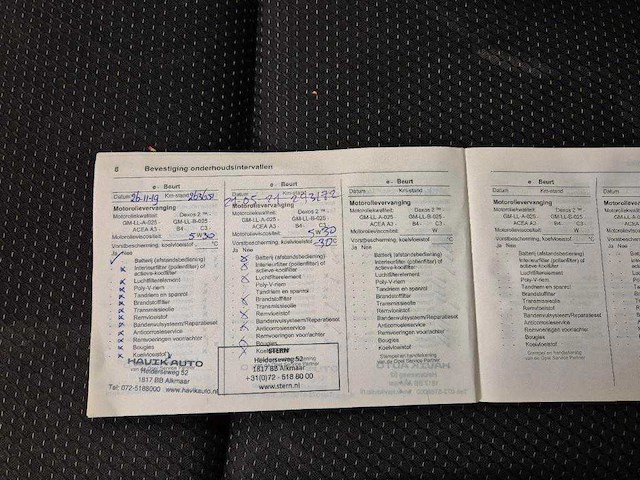 6 Bevestiging onderhoudsintervallen
e - Beurt
Datum 26-11-19 Km-stand
Motorolieverversing
Motoroliekwaliteit: Dexos 2 ™
GM-LL-A-025 GM-LL-B-025
ACEA A3 B4 C3
Motorolieviscositeit: 5W30
Vorstbescherming, koelvloeistof °C
Ja Nee
Batterij (afstandsbediening)
Interieurfilter (pollenfilter) of
actieve-koolfilter
Luchtfilterelement
Poly-V-riem
Tandriem en spanrol
Brandstoffilter
Transmissieolie
Remvloeistof
Bandenvulsysteem/Reparatieset
Anticorrosieservice
Remvoeringen voor/achter
Bougies
Koelvloeistof
HAVIK AUTO
Helderseweg 52
1817 BB Alkmaar
Tel: 072-5188000 www.havikauto.nl
e - Beurt
Datum Km-stand
Motorolieverversing
Motoroliekwaliteit: Dexos 2 ™
GM-LL-A-025 GM-LL-B-025
ACEA A3 B4 C3
Motorolieviscositeit: 5W30
Vorstbescherming, koelvloeistof
-30°C
Ja Nee
Batterij (afstandsbediening)
Interieurfilter (pollenfilter) of
actieve-koolfilter
Luchtfilterelement
Poly-V-riem
Tandriem en spanrol
Brandstoffilter
Transmissieolie
Remvloeistof
Bandenvulsysteem/Reparatieset
Anticorrosieservice
Remvoeringen voor/achter
Bougies
STERN
Helderseweg 52
1817 BB Alkmaar
+31(0)72 - 518 80 00
www.stern.nl
e - Beurt
Datum Km-stand
Motorolieverversing
Motoroliekwaliteit: Dexos 2 ™
GM-LL-A-025 GM-LL-B-025
ACEA A3 B4 C3
Motorolieviscositeit: W
Vorstbescherming, koelvloeistof °C
Ja Nee
Batterij (afstandsbediening)
Interieurfilter (pollenfilter) of
actieve-koolfilter
Luchtfilterelement
Poly-V-riem
Tandriem en spanrol
Brandstoffilter
Transmissieolie
Remvloeistof
Bandenvulsysteem/Reparatieset
Anticorrosieservice
Remvoeringen voor/achter
Bougies
Koelvloeistof
Stempel en handtekening
van de Opel Service Partner
e - Beurt
Datum Km-stand
Motorolieverversing
Motoroliekwaliteit: Dexos 2 ™
GM-LL-A-025 GM-LL-B-025
ACEA A3 B4 C3
Motorolieviscositeit: W
Vorstbescherming, koelvloeistof °C
Ja Nee
Batterij (afstandsbediening)
Interieurfilter (pollenfilter) of
actieve-koolfilter
Luchtfilterelement
Poly-V-riem
Tandriem en spanrol
Brandstoffilter
Transmissieolie
Remvloeistof
Bandenvulsysteem/Reparatieset
Anticorrosieservice
Remvoeringen voor/achter
Bougies
Koelvloeistof
Stempel en handtekening
van de Opel Service Partner
Datum